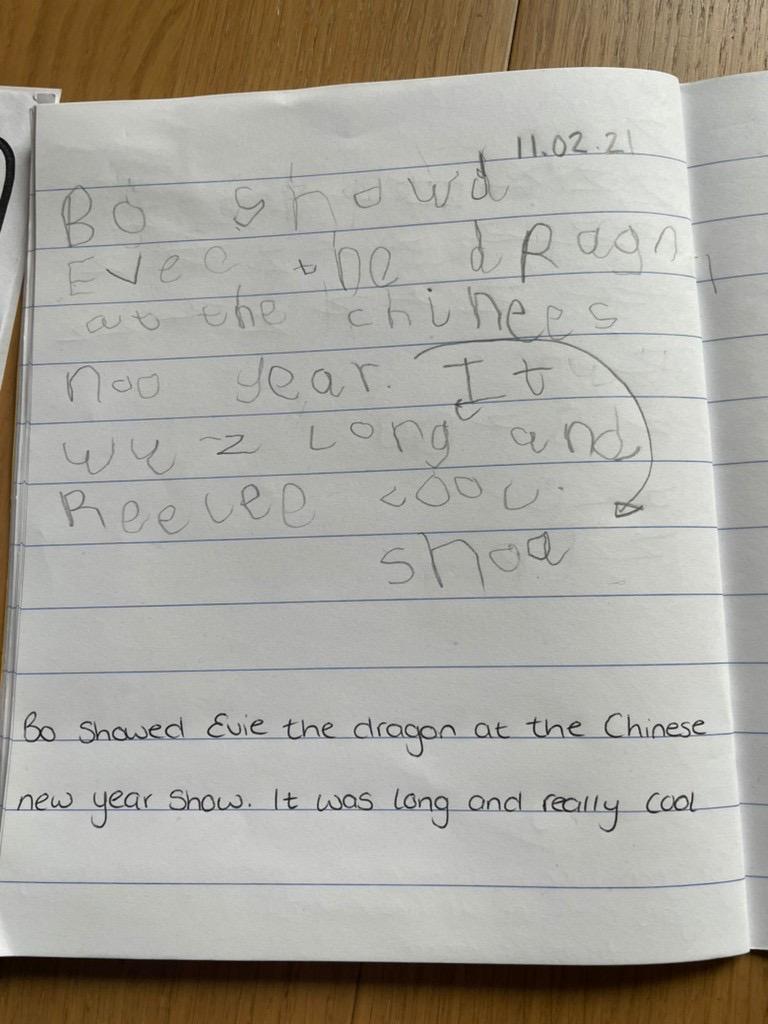 11.02.21
Bo showd
Evee the dRagn
at the chinees
noo year. It
wuz Long and
ReeLee cooL.
shoa
Bo showed Evie the dragon at the Chinese
new year show. It was long and really cool